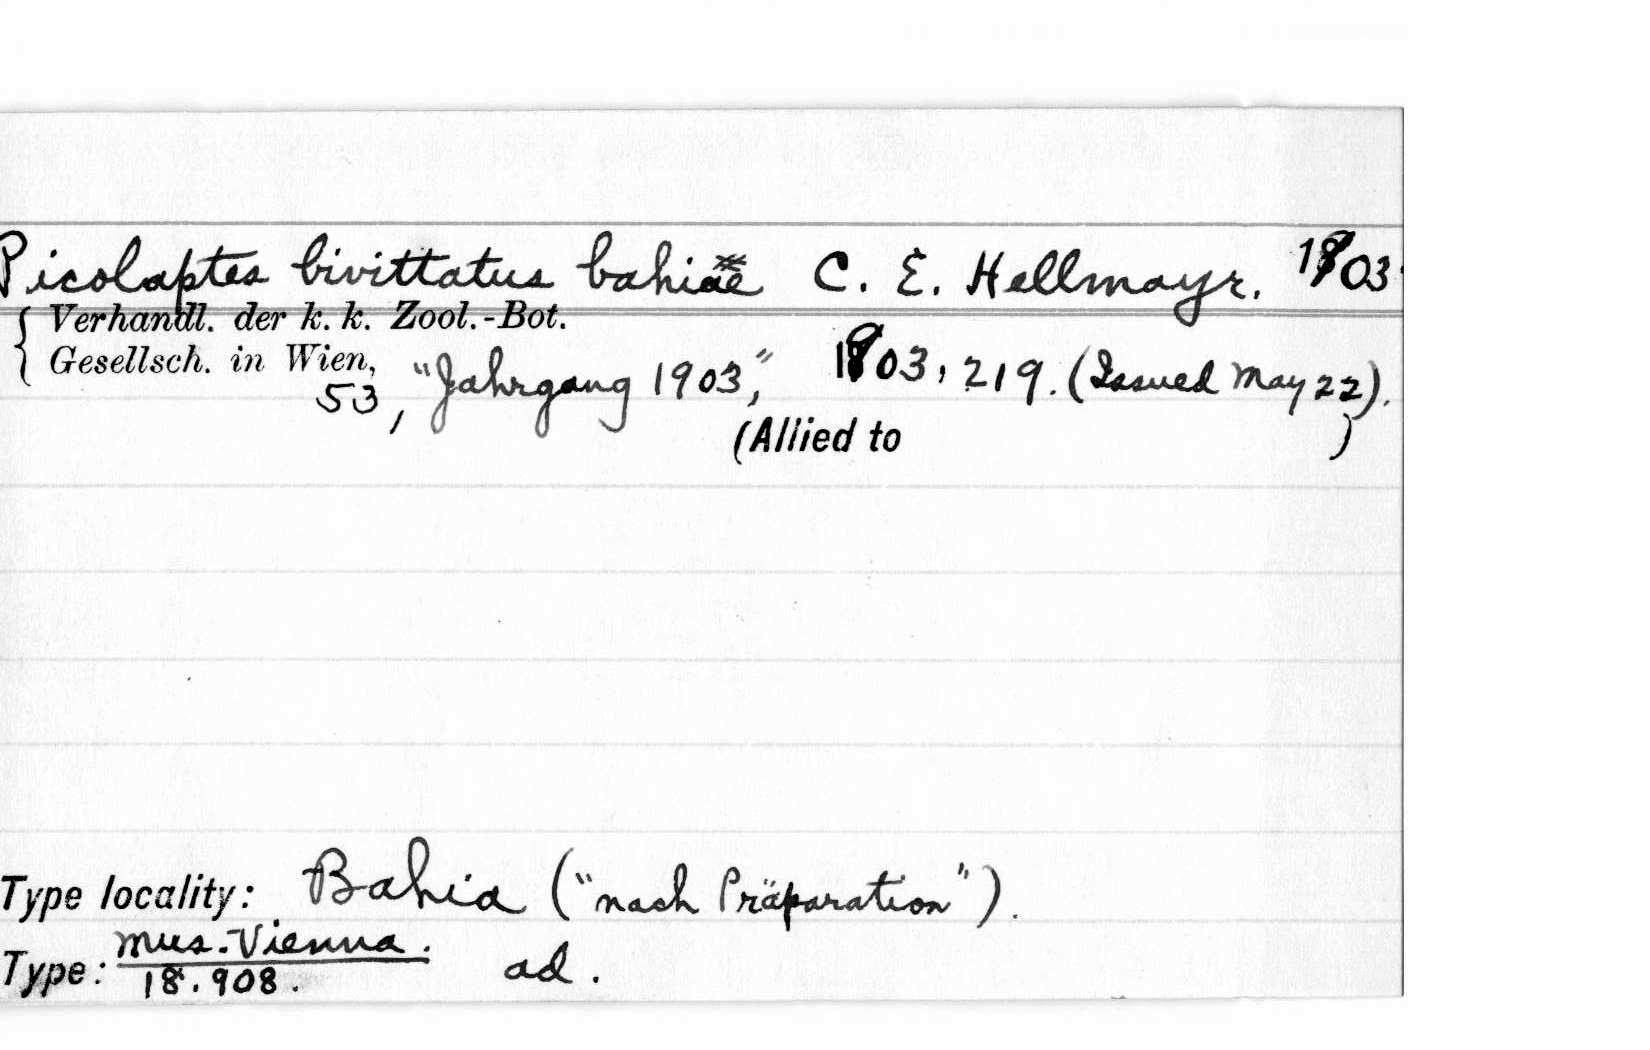 Picolaptes bivittatus bahiae C. E. Hellmayr. 1903.
Verhandl. der k. k. Zool.-Bot.
Gesellsch. in Wien,
53, "Jahrgang 1903," 1903, 219. (Issued May 22).
(Allied to )
Type locality: Bahia ("nach Präparation").
Mus. Vienna.
Type: 18.908. ad.